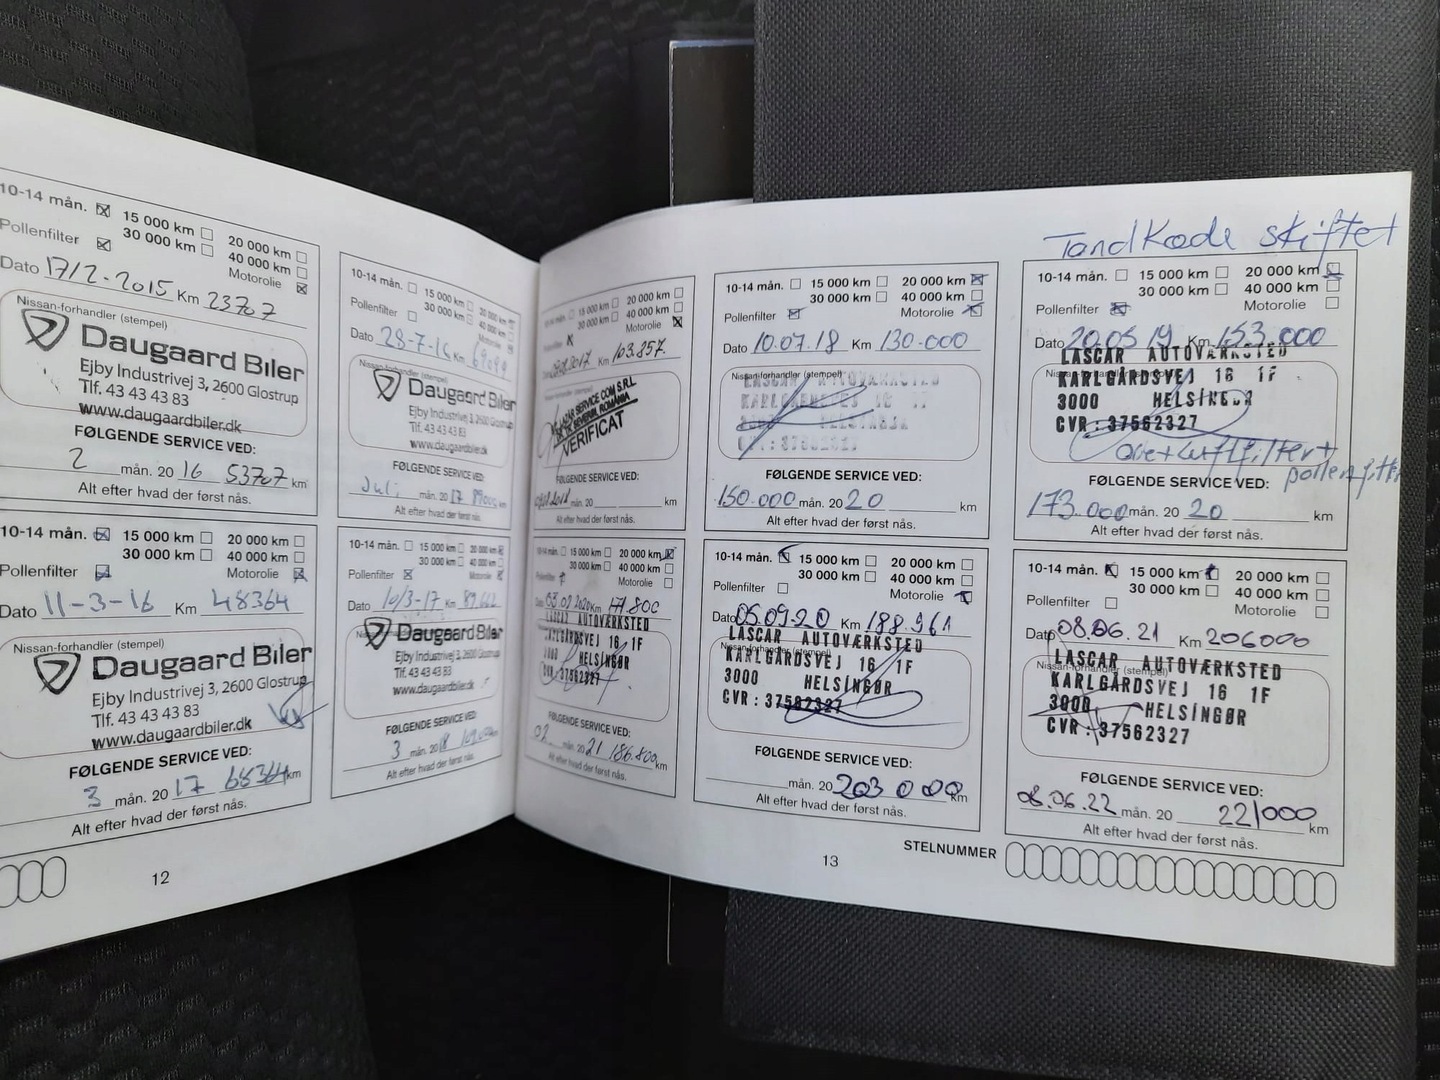 10-14 mån. 15 000 km 20 000 km
30 000 km 40 000 km
Pollenfilter Motorolie
Dato 17/2-2015 Km 23707
Nissan-forhandler (stempel)
Daugaard Biler
Ejby Industrivej 3, 2600 Glostrup
Tlf. 43 43 43 83
www.daugaardbiler.dk
FØLGENDE SERVICE VED:
2 mån. 20 16 53707 km
Alt efter hvad der først nås.
10-14 mån. 15 000 km 20 000 km
30 000 km 40 000 km
Pollenfilter Motorolie
Dato 11-3-16 Km 48364
Nissan-forhandler (stempel)
Daugaard Biler
Ejby Industrivej 3, 2600 Glostrup
Tlf. 43 43 43 83
www.daugaardbiler.dk
FØLGENDE SERVICE VED:
3 mån. 20 17 68364 km
Alt efter hvad der først nås.
12
10-14 mån. 15 000 km 20 000 km
30 000 km 40 000 km
Pollenfilter
Dato 28-7-16 Km
Daugaard Biler
Ejby Industrivej 3, 2600 Glostrup
Tlf. 43 43 43 83
www.daugaardbiler.dk
FØLGENDE SERVICE VED:
Juli mån. 20 17
Alt efter hvad der først nås.
10-14 mån. 15 000 km 20 000 km
30 000 km 40 000 km
Pollenfilter
Dato 10/3-17 Km
Daugaard Biler
Ejby Industrivej 3, 2600 Glostrup
Tlf. 43 43 43 83
www.daugaardbiler.dk
FØLGENDE SERVICE VED:
3 mån. 20 18
Alt efter hvad der først nås.
15 000 km 20 000 km
30 000 km 40 000 km
Motorolie
Km 103.857.
SERVICE COM S.R.L.
ROMÂNIA
VERIFICAT
FØLGENDE SERVICE VED:
mån. 20 km
Alt efter hvad der først nås.
10-14 mån. 15 000 km 20 000 km
30 000 km 40 000 km
Pollenfilter Motorolie
03 02 2020 Km 171.800
LASCAR AUTOVÆRKSTED
KARLGÅRDSVEJ 16 1F
3000 HELSİNGØR
CVR : 37562327
FØLGENDE SERVICE VED:
02 mån. 20 21 186.800 km
Alt efter hvad der først nås.
10-14 mån. 15 000 km 20 000 km
30 000 km 40 000 km
Pollenfilter Motorolie
Dato 10.07.18 Km 130.000
Nissan-forhandler (stempel)
LASCAR AUTOVÆRKSTED
KARLGÅRDSVEJ 16 1F
3000 HELSİNGØR
CVR : 37562327
FØLGENDE SERVICE VED:
150.000 mån. 20 20 km
Alt efter hvad der først nås.
10-14 mån. 15 000 km 20 000 km
30 000 km 40 000 km
Pollenfilter Motorolie
Dato 05.09.20 Km 188.961
LASCAR AUTOVÆRKSTED
KARLGÅRDSVEJ 16 1F
3000 HELSİNGØR
CVR : 37562327
FØLGENDE SERVICE VED:
mån. 20 203 000 km
Alt efter hvad der først nås.
13
TandKæde skiftet
10-14 mån. 15 000 km 20 000 km
30 000 km 40 000 km
Pollenfilter Motorolie
Dato 20.05 19 Km 153.000
LASCAR AUTOVÆRKSTED
KARLGÅRDSVEJ 16 1F
3000 HELSİNGØR
CVR : 37562327
Olie+Luftfilter+
FØLGENDE SERVICE VED:
173.000 mån. 20 20 km
Alt efter hvad der først nås.
10-14 mån. 15 000 km 20 000 km
30 000 km 40 000 km
Pollenfilter Motorolie
Dato 08.06.21 Km 206000
Nissan-forhandler (stempel)
LASCAR AUTOVÆRKSTED
KARLGÅRDSVEJ 16 1F
3000 HELSİNGØR
CVR : 37562327
FØLGENDE SERVICE VED:
08.06.22 mån. 20 221000 km
Alt efter hvad der først nås.
STELNUMMER